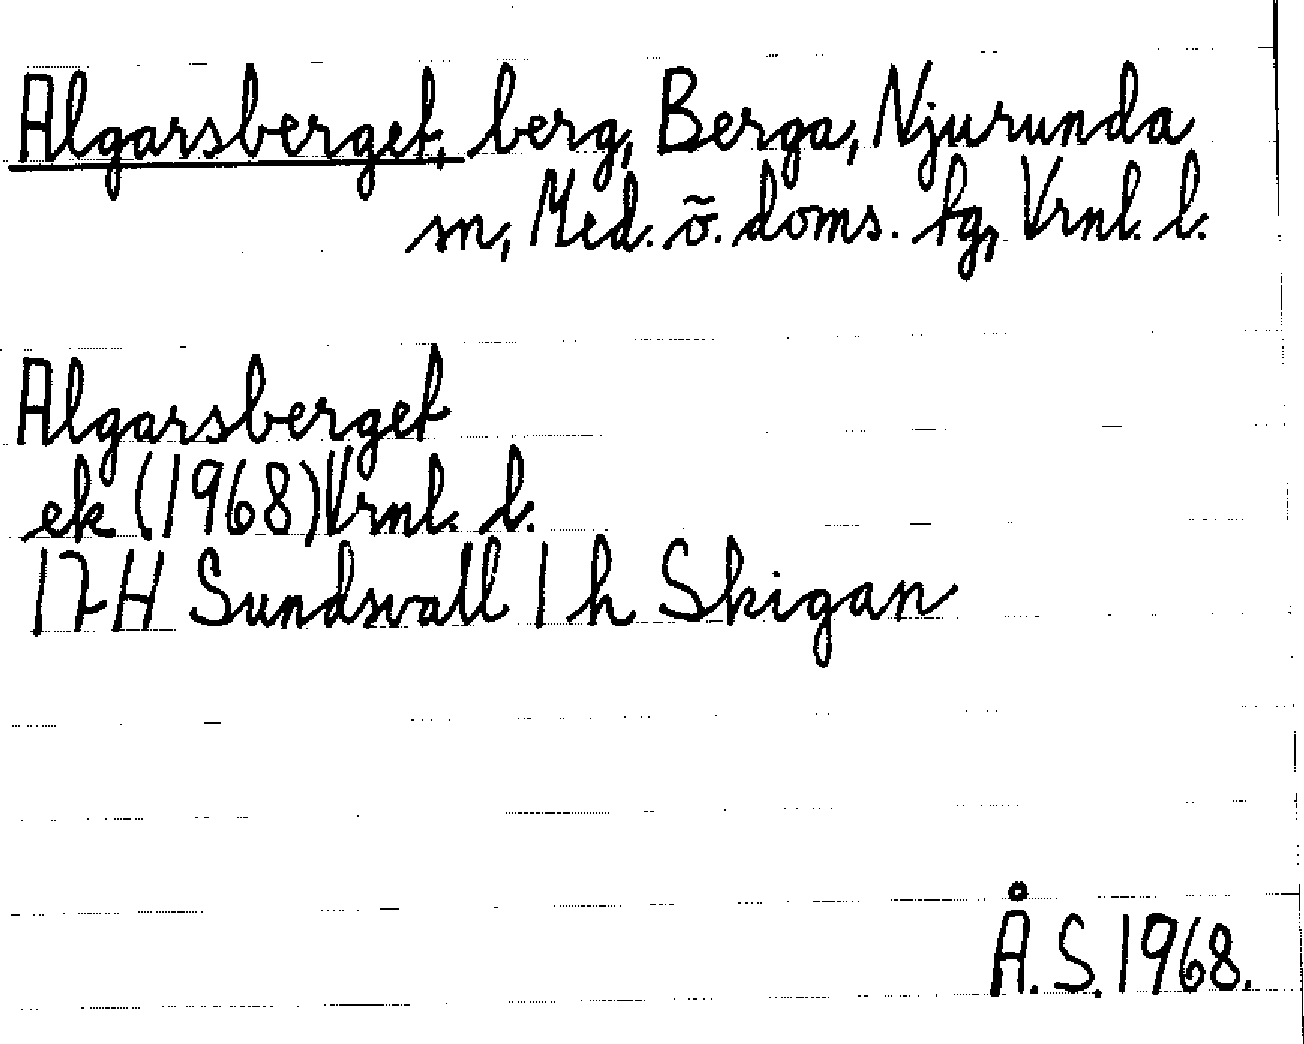 Algarsberget, berg, Berga, Njurunda
sn, Med. ö. doms. fg, Vrnl. l.
Algarsberget
ek (1968) Vrnl. l.
17H Sundsvall 1 h Skigan
Å. S. 1968.